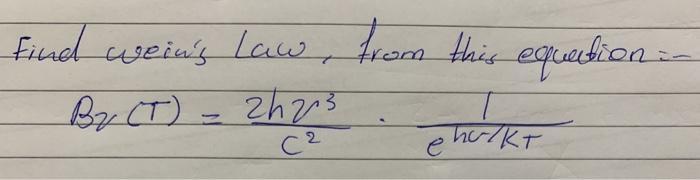 Find wein's Law, from this equation :-
Bν(T) = 2hν³/c² · 1/e^hν/KT